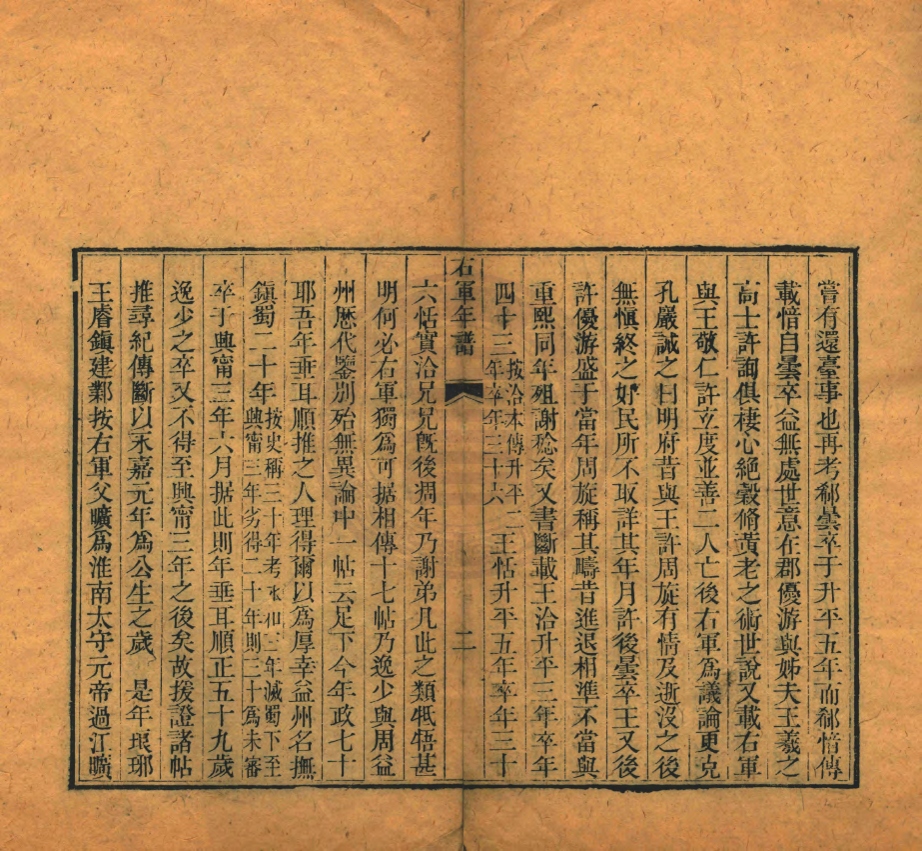 嘗有還臺事也再考郗曇卒于升平五年而郗愔傳
載愔自曇卒益無處世意在郡優游與姊夫王羲之
高士許詢俱棲心絕穀脩黃老之術世說又載右軍
與王敬仁許立度並善二人亡後右軍為議論更克
孔巖誡之曰明府昔與王許周旋有情及逝沒之後
無愼終之好民所不取詳其年月許後曇卒王又後
許優游盛于當年周旋稱其疇昔進退相準不當與
重熙同年殂謝稔矣又書斷載王洽升平三年卒年
四十三按洽本傳升平二年卒年三十六王恬升平五年卒年三十
六恬實洽兄兄旣後凋年乃謝弟凡此之類牴牾甚
明何必右軍獨為可据相傳十七帖乃逸少與周益
州歷代鑒別殆無異論中一帖云足下今年政七十
耶吾年垂耳順推之人理得爾以為厚幸益州名撫
鎮蜀二十年按史稱三十年考永和三年滅蜀下至興甯三年劣得二十年則三十為未審
卒于興甯三年六月据此則年垂耳順正五十九歲
逸少之卒又不得至興甯三年之後矣故援證諸帖
推尋紀傳斷以永嘉元年為公生之歲 是年琅琊
王睿鎮建鄴按右軍父曠為淮南太守元帝過江曠
右軍年譜 二